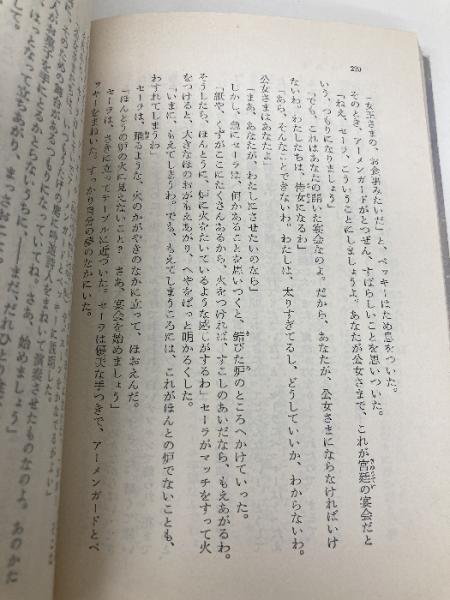 220
「女王さまの、お食事みたいだ」と、ベッキーはため息をついた。
そのとき、アーメンガードがとつぜん、すばらしいことを思いついた。
「ねえ、セーラ、こういうことにしましょうよ。あなたが公女さまで、これが宮廷の宴会だと
いう、つもりになりましょう」
「でも、これはあなたの開いた宴会なのよ。だから、あなたが、公女さまにならなければいけ
ないわ。わたしたちは、侍女になるわ」
「あら、そんなことできないわ。わたしは、太りすぎてるし、どうしていいか、わからないわ。
公女さまはあなたよ」
「まあ、あなたが、わたしにさせたいのなら」
しかし、急にセーラは、何かあることを思いつくと、錆びた炉のところへかけていった。
「紙や、くずがここにたくさんあるから、火をつければ、すこしのあいだなら、もえあがるわ。
そうしたら、ほんとうに、炉に火をたいているような感じがするわ」セーラがマッチをすって火
をつけると、大きなほのおがもえあがり、へやをぱっと明かるくした。
「いまに、もえてしまうわ。でも、もえてしまうころには、これがほんとの炉でないことも、
わすれてしまうわ」
セーラは、踊るような、火のかがやきのなかに立って、ほおえんだ。
「ほんとうの炉の火に見えないこと？　さあ、宴会を始めましょう」
セーラは、さきに立ってテーブルに近づいた。セーラは優美な手つきで、アーメンガードとベ
ッキーをまねいた。すっかり自分の夢のなかにいた。